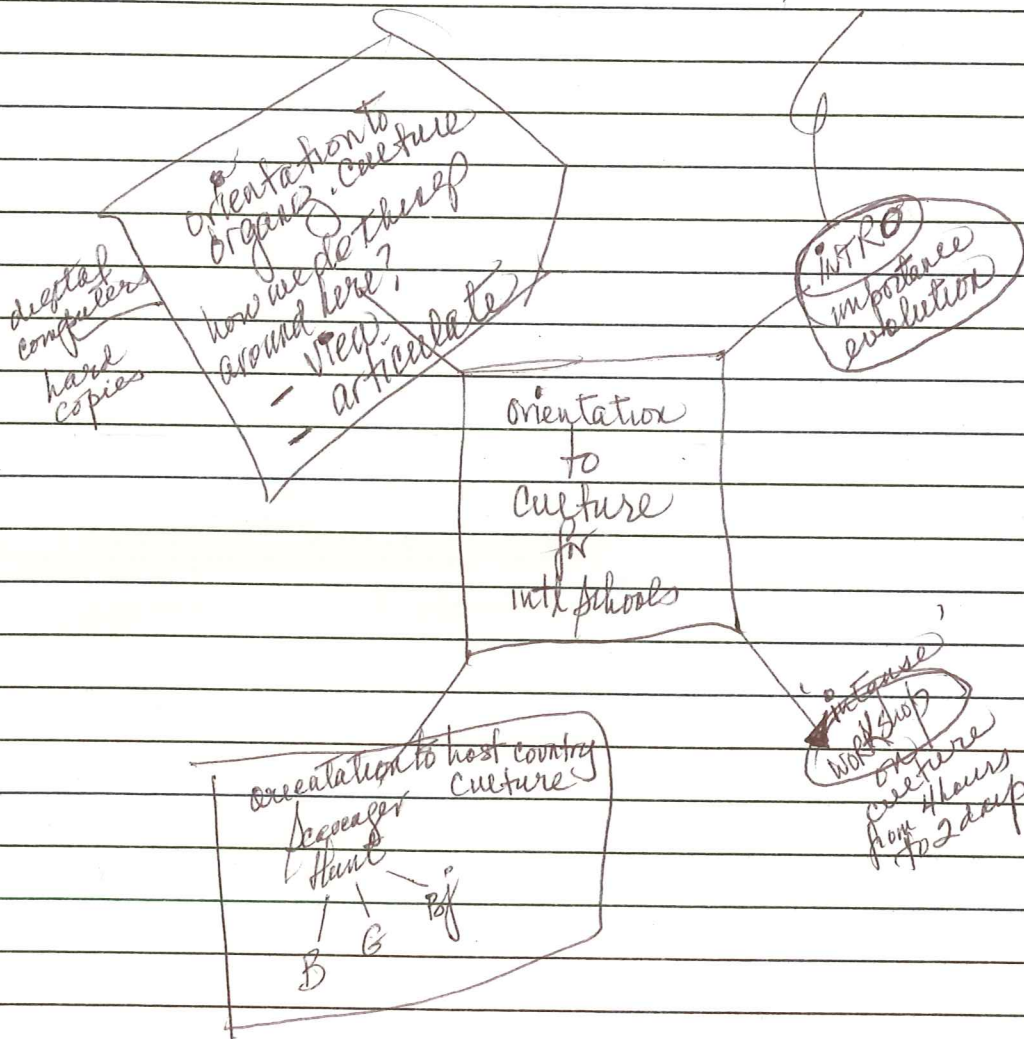 orientation to
organiz. culture
how we do things
around here?
- view
- articulate
digital
computers
hard
copies
INTRO
importance
evolution
orientation
to
Culture
for
intl schools
orientation to host country
Culture
Scavenger
Hunt
B
G
Bj
intense
WORKSHOP
on
culture
from 4 hours
to 2 days